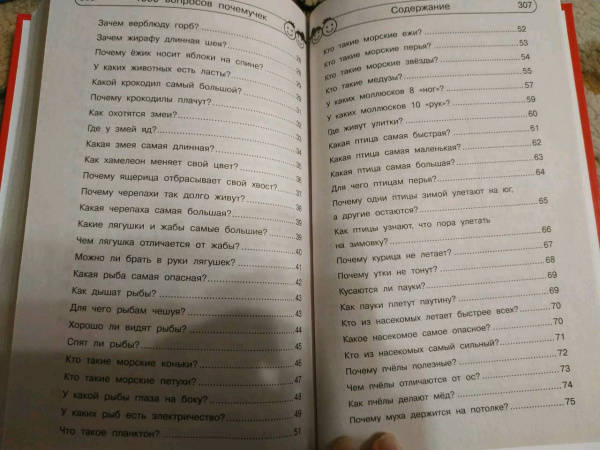 вопросов почемучек
Зачем верблюду горб?
Зачем жирафу длинная шея?
Почему ёжик носит яблоки на спине?
У каких животных есть ласты?
Какой крокодил самый большой?
Почему крокодилы плачут? 31
Как охотятся змеи? 32
Где у змей яд? 33
Какая змея самая длинная? 34
Как хамелеон меняет свой цвет? 35
Почему ящерица отбрасывает свой хвост? 37
Почему черепахи так долго живут? 38
Какая черепаха самая большая? 38
Какие лягушки и жабы самые большие? 39
Чем лягушка отличается от жабы? 40
Можно ли брать в руки лягушек? 41
Какая рыба самая опасная? 42
Как дышат рыбы? 43
Для чего рыбам чешуя? 43
Хорошо ли видят рыбы? 44
Спят ли рыбы? 45
Кто такие морские коньки? 46
Кто такие морские петухи? 47
У какой рыбы глаза на боку? 48
У каких рыб есть электричество? 49
Что такое планктон? 51
Содержание 307
Кто такие морские ежи? 52
Кто такие морские перья? 53
Кто такие морские звёзды? 54
Кто такие медузы? 55
У каких моллюсков 8 «ног»? 57
У каких моллюсков 10 «рук»? 59
Где живут улитки? 60
Какая птица самая быстрая? 61
Какая птица самая маленькая? 62
Какая птица самая большая? 63
Для чего птицам перья? 64
Почему одни птицы зимой улетают на юг,
а другие остаются? 65
Как птицы узнают, что пора улетать
на зимовку? 66
Почему курица не летает? 67
Почему утки не тонут? 68
Кусаются ли пауки? 69
Как пауки плетут паутину? 69
Кто из насекомых летает быстрее всех? 70
Какое насекомое самое опасное? 70
Кто из насекомых самый сильный? 71
Почему пчёлы полезные? 72
Чем пчёлы отличаются от ос? 73
Как пчёлы делают мёд? 74
Почему муха держится на потолке? 75